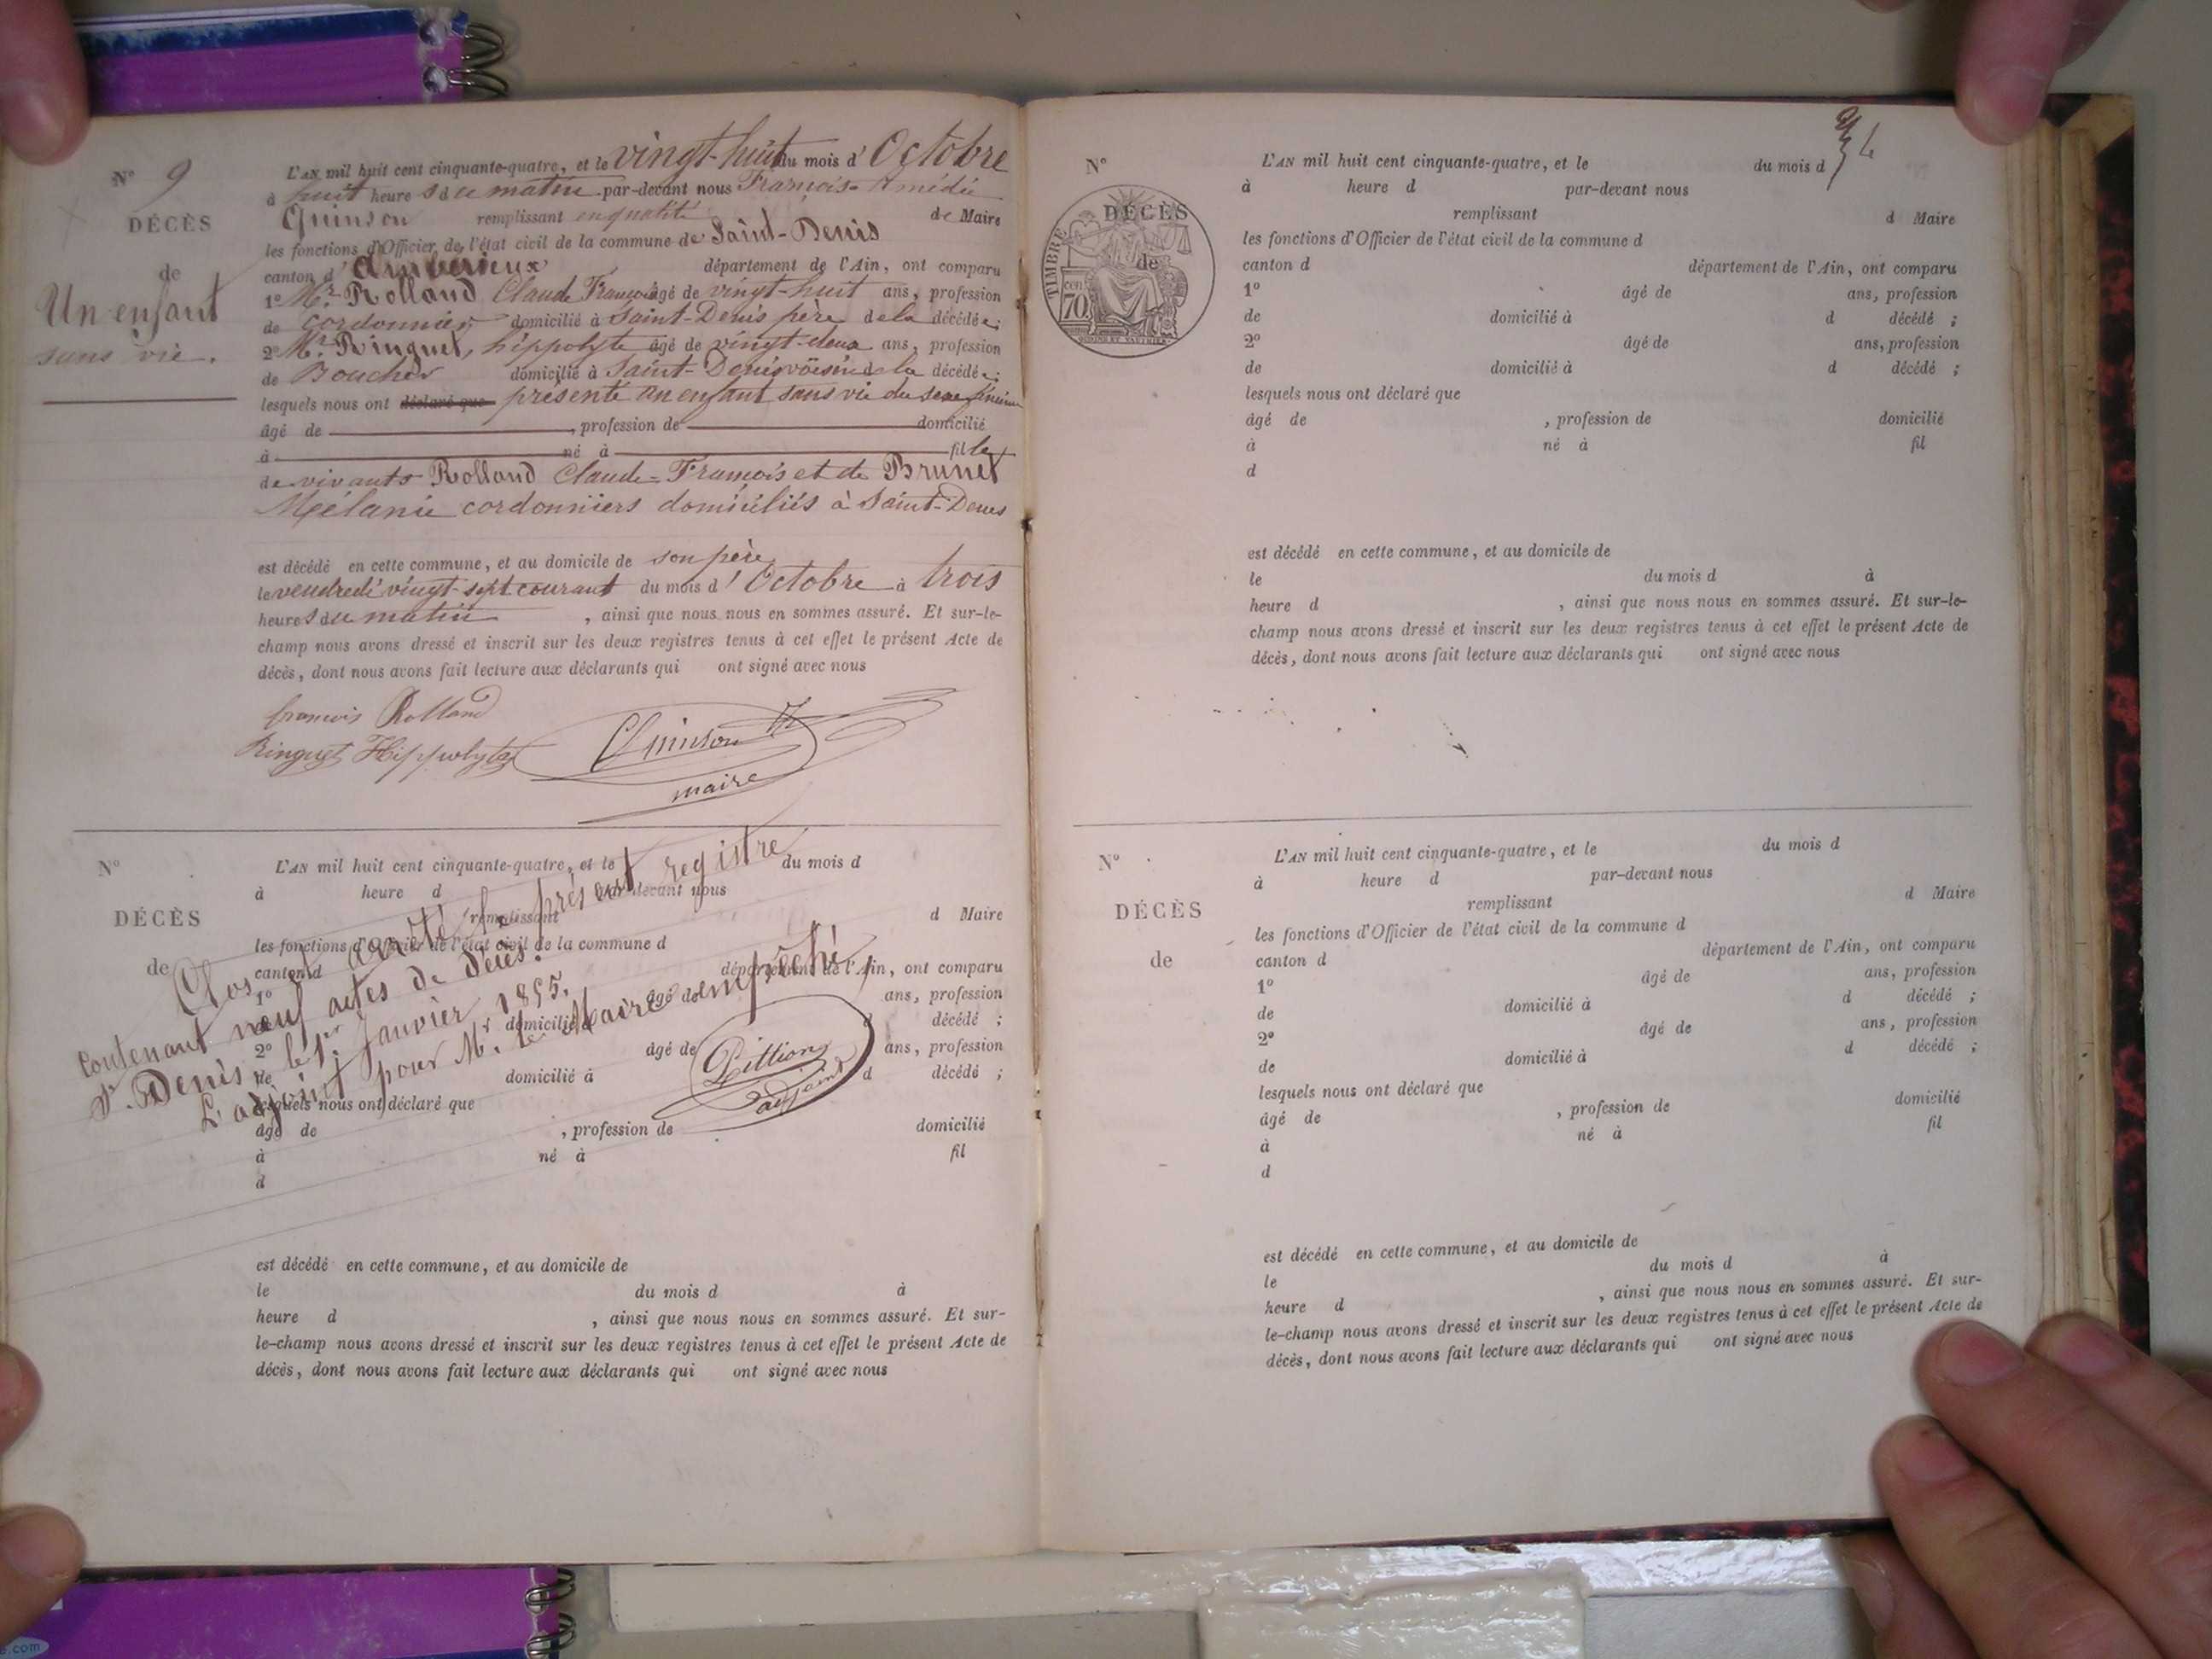 N° 9
DÉCÈS
de
Un enfant
sans vie.
L'AN mil huit cent cinquante-quatre, et le vingt-huit du mois d'Octobre
à huit heures du matin par-devant nous François-Amédée
Quinson remplissant en qualité de Maire
les fonctions d'Officier de l'état civil de la commune de Saint-Denis
canton d'Ambérieux département de l'Ain, ont comparu
1° Mr. Rolland Claude François âgé de vingt-huit ans, profession
de cordonnier domicilié à Saint-Denis père de la décédée;
2° Mr. Ringuet, hippolyte âgé de vingt-deux ans, profession
de Boucher domicilié à Saint-Denis voisin de la décédée;
lesquels nous ont déclaré que présenté un enfant sans vie du sexe féminin
âgé de , profession de domicilié
à né à fille
de vivants Rolland Claude-François et de Brunet
Mélanie cordonniers domiciliés à Saint-Denis
est décédé en cette commune, et au domicile de son père
le vendredi vingt-sept courant du mois d'Octobre à trois
heures du matin , ainsi que nous nous en sommes assuré. Et sur-le-
champ nous avons dressé et inscrit sur les deux registres tenus à cet effet le présent Acte de
décès, dont nous avons fait lecture aux déclarants qui ont signé avec nous
francois Rolland
Ringuet Hippolyte
Quinson
maire
N°
DÉCÈS
de
L'AN mil huit cent cinquante-quatre, et le du mois d
à heure d par-devant nous
remplissant d Maire
les fonctions d'Officier de l'état civil de la commune d
canton d département de l'Ain, ont comparu
1° âgé de ans, profession
de domicilié à d décédé ;
2° âgé de ans, profession
de domicilié à d décédé ;
lesquels nous ont déclaré que
âgé de , profession de domicilié
à né à fil
d
Clos et arrêté le présent registre
Contenant neuf actes de décès.
St. Denis le 1er Janvier 1855.
L'adjoint pour Mr. le Maire empêché
Pittion
adjoint
est décédé en cette commune, et au domicile de
le du mois d à
heure d , ainsi que nous nous en sommes assuré. Et sur-
le-champ nous avons dressé et inscrit sur les deux registres tenus à cet effet le présent Acte de
décès, dont nous avons fait lecture aux déclarants qui ont signé avec nous
N°
DÉCÈS
de
TIMBRE
cen
70
L'AN mil huit cent cinquante-quatre, et le du mois d
à heure d par-devant nous
remplissant d Maire
les fonctions d'Officier de l'état civil de la commune d
canton d département de l'Ain, ont comparu
1° âgé de ans, profession
de domicilié à d décédé ;
2° âgé de ans, profession
de domicilié à d décédé ;
lesquels nous ont déclaré que
âgé de , profession de domicilié
à né à fil
d
est décédé en cette commune, et au domicile de
le du mois d à
heure d , ainsi que nous nous en sommes assuré. Et sur-le-
champ nous avons dressé et inscrit sur les deux registres tenus à cet effet le présent Acte de
décès, dont nous avons fait lecture aux déclarants qui ont signé avec nous
N°
DÉCÈS
de
L'AN mil huit cent cinquante-quatre, et le du mois d
à heure d par-devant nous
remplissant d Maire
les fonctions d'Officier de l'état civil de la commune d
canton d département de l'Ain, ont comparu
1° âgé de ans, profession
de domicilié à d décédé ;
2° âgé de ans, profession
de domicilié à d décédé ;
lesquels nous ont déclaré que
âgé de , profession de domicilié
à né à fil
d
est décédé en cette commune, et au domicile de
le du mois d à
heure d , ainsi que nous nous en sommes assuré. Et sur-
le-champ nous avons dressé et inscrit sur les deux registres tenus à cet effet le présent Acte de
décès, dont nous avons fait lecture aux déclarants qui ont signé avec nous
e.com